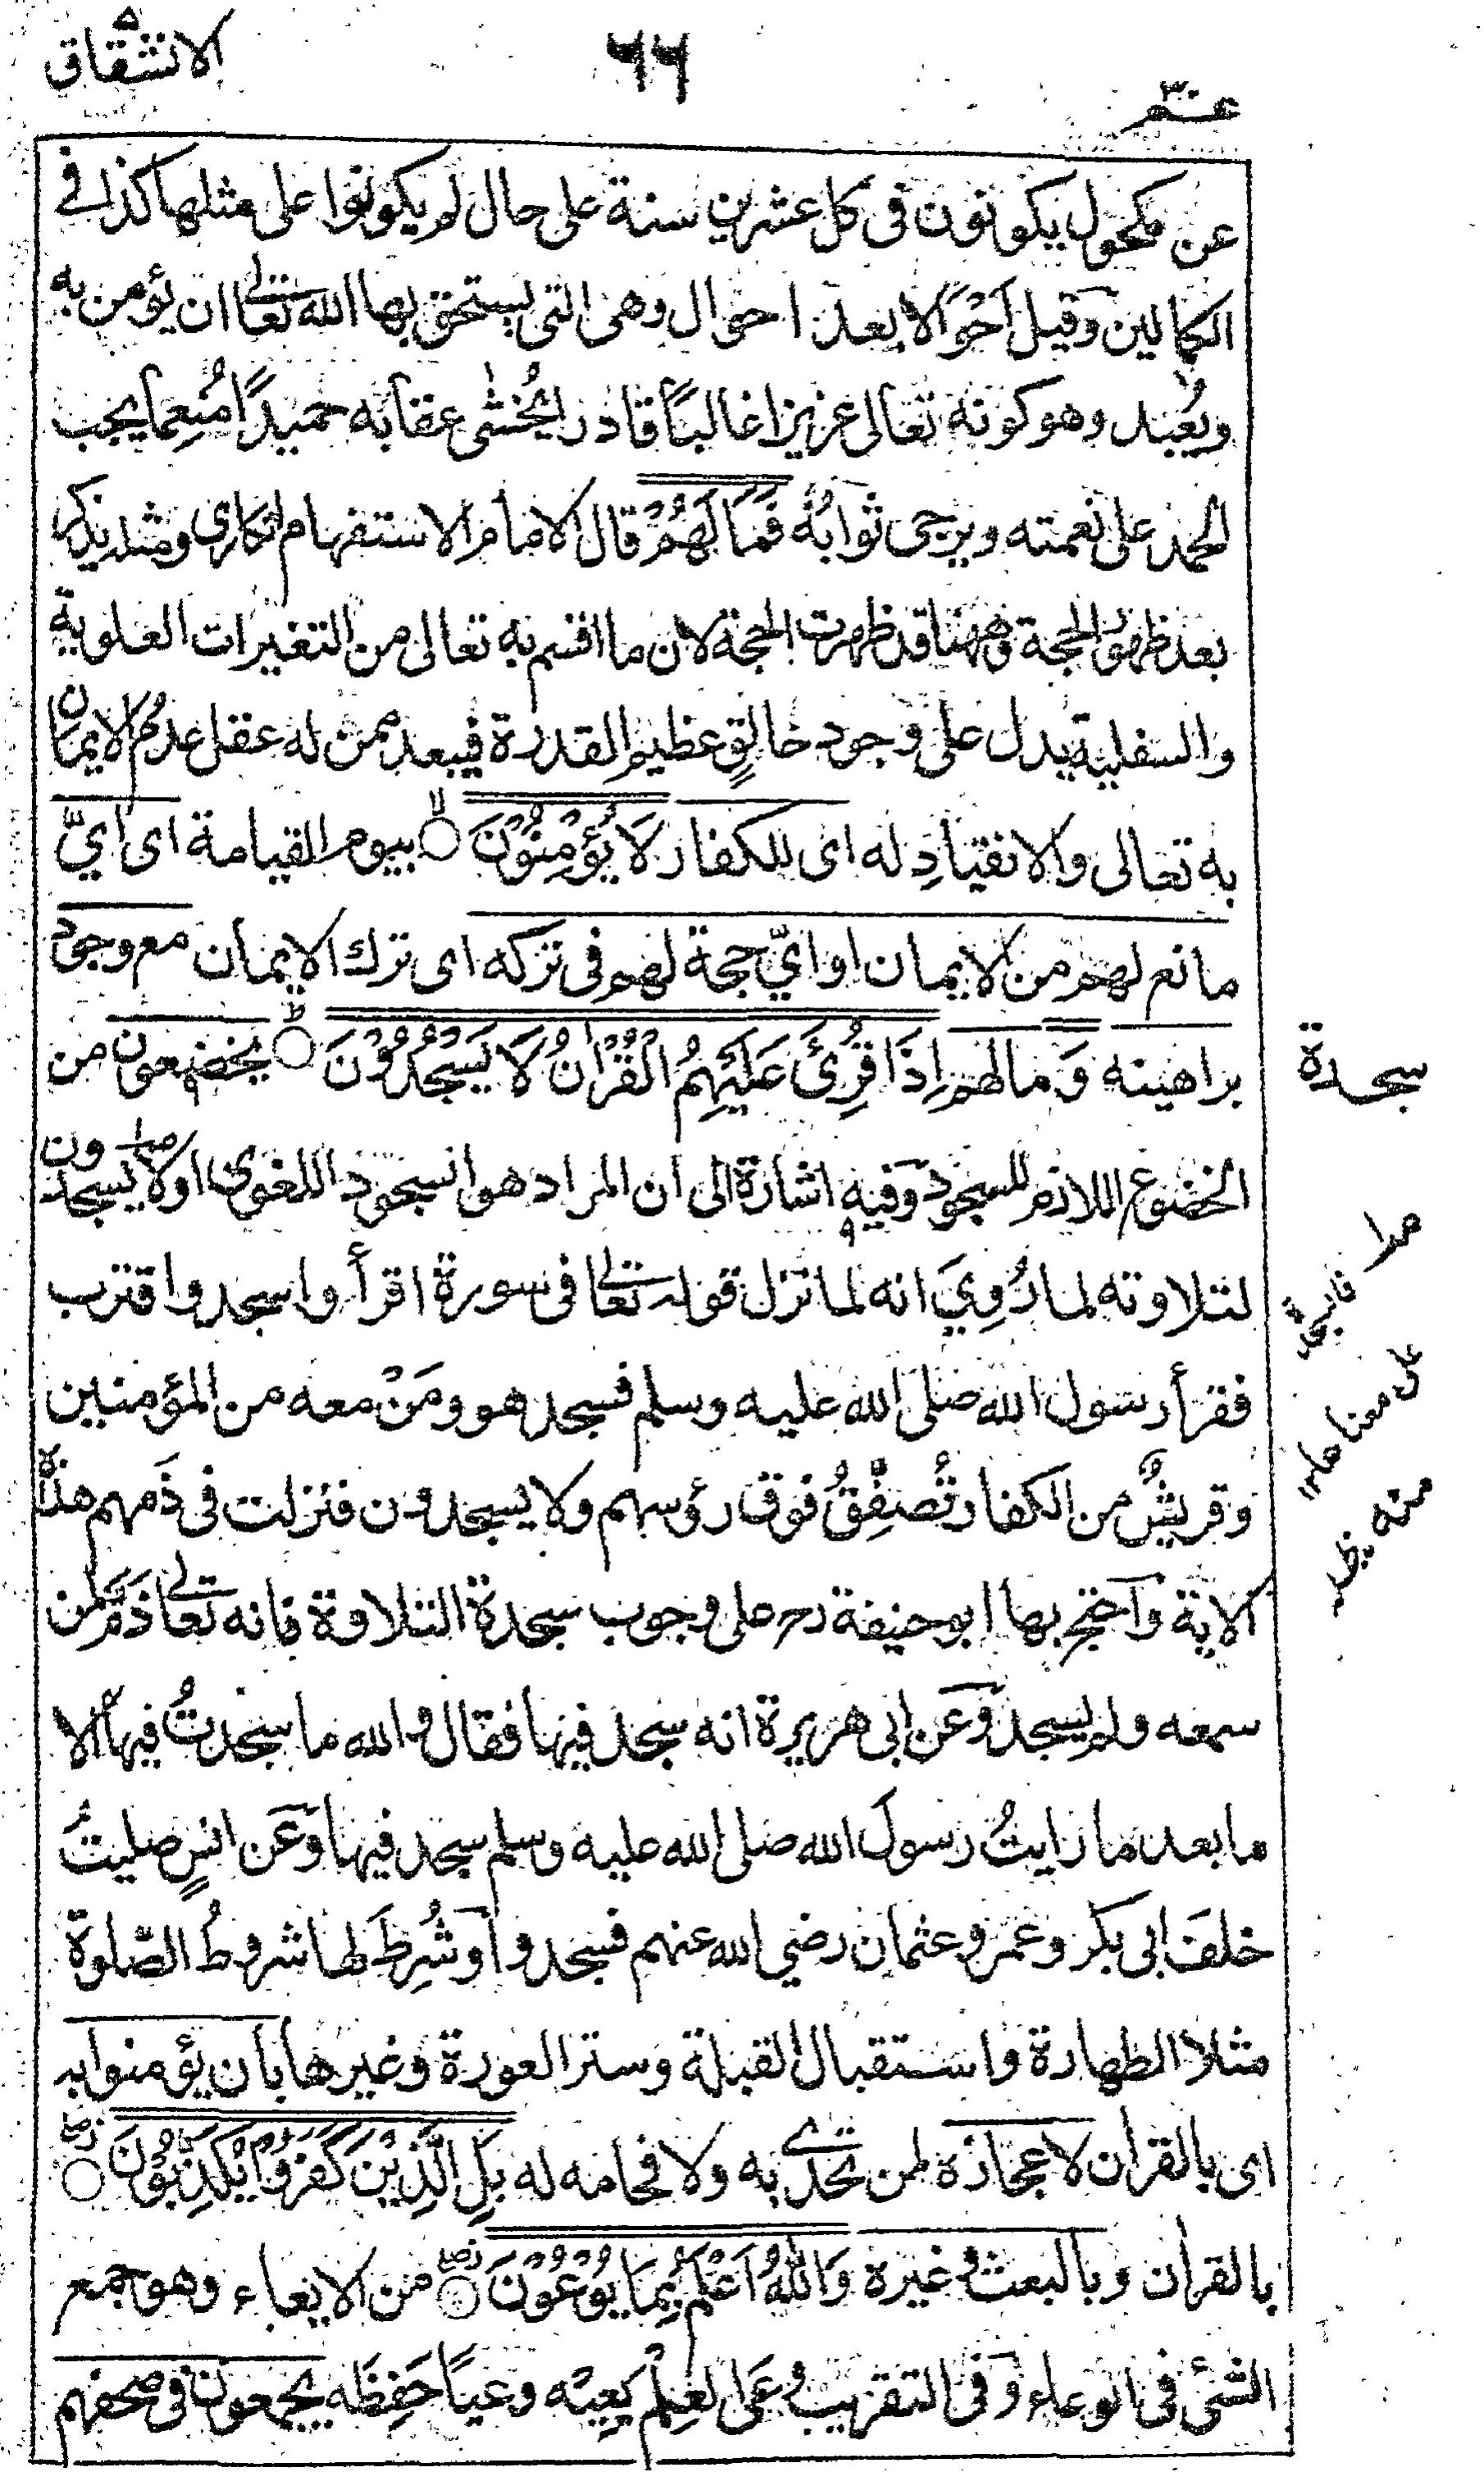 الانشقاق
٦٦
عــم ٣٠
عن مكحول يكونون فى كل عشرين سنة على حال لم يكونوا على مثلها كذا فے
الكمالين وقيل أحوالا بعد احوال وهى التى يستحق بها الله تعالى ان يؤمن به
ويُعبد وهو كونه تعالى عزيزا غالباً قادرا يُخشى عقابه حميدًا مُنعِما يجب
الحمد على نعمته ويرجى ثوابُه فَمَا لَهُمْ قال الامام الاستفهام انكارى ومثله يذكر
بعد ظهور الحجة وههنا قد ظهرت الحجة لان ما اقسم به تعالى من التغيرات العلوية
والسفلية يدل على وجود خالقٍ عظيم القدرة فيبعد ممن له عقل عدمُ الايمان
به تعالى والانقيادِ له اى للكفار لَا يُؤْمِنُوْنَ بيوم القيامة اى اىّ
مانع لهم من الايمان او اىّ حجة لهم فى تركه اى ترك الايمان مع وجود
براهينه وَ ما لهم اِذَا قُرِئَ عَلَيْهِمُ الْقُرْاٰنُ لَا يَسْجُدُوْنَ يخضعون من
سجدة
الخضوع اللازم للسجود وفيه اشارة الى ان المراد هو السجود اللغوى او لا يسجدون
لتلاوته لما رُوِيَ انه لما نزل قوله تعالى فى سورة اقرأ واسجد واقترب
فقرأ رسول الله صلى الله عليه وسلم فسجد هو ومَنْ معه من المؤمنين
وقريشٌ من الكفار تُصفِّقُ فوق رؤسهم ولا يسجدون فنزلت فى ذَمهم هذه
الاية وآحتج بها ابو حنيفة رح على وجوب سجدة التلاوة فانه تعالى ذَمّ لمن
سمعه ولم يسجد وعن ابى هريرة انه سجد فيها فقال والله ما سجدتُ فيها الا
ما بعد ما رايتُ رسولَ الله صلى الله عليه وسلم سجد فيها وعن انسٍ صليتُ
خلفَ ابى بكر وعمر وعثمان رضي الله عنهم فسجدوا وشُرِطَ لها شروطُ الصّلوة
مثلا الطهارة واستقبال القبلة وستر العورة وغيرها بأن يؤمنوا به
اى بالقرآن لاعجازه لمن تحدى به ولا فحامه له بَلِ الَّذِيْنَ كَفَرُوْا يُكَذِّبُوْنَ
بالقرآن وبالبعث وغيره وَاللّٰهُ اَعْلَمُ بِمَا يُوْعُوْنَ من الايعاء وهو جمع
الشئ فى الوعاء وفى التقريب وَعَى العِلْمَ يَعِيْه وعيًا حَفِظَه يجمعون فى صحفهم